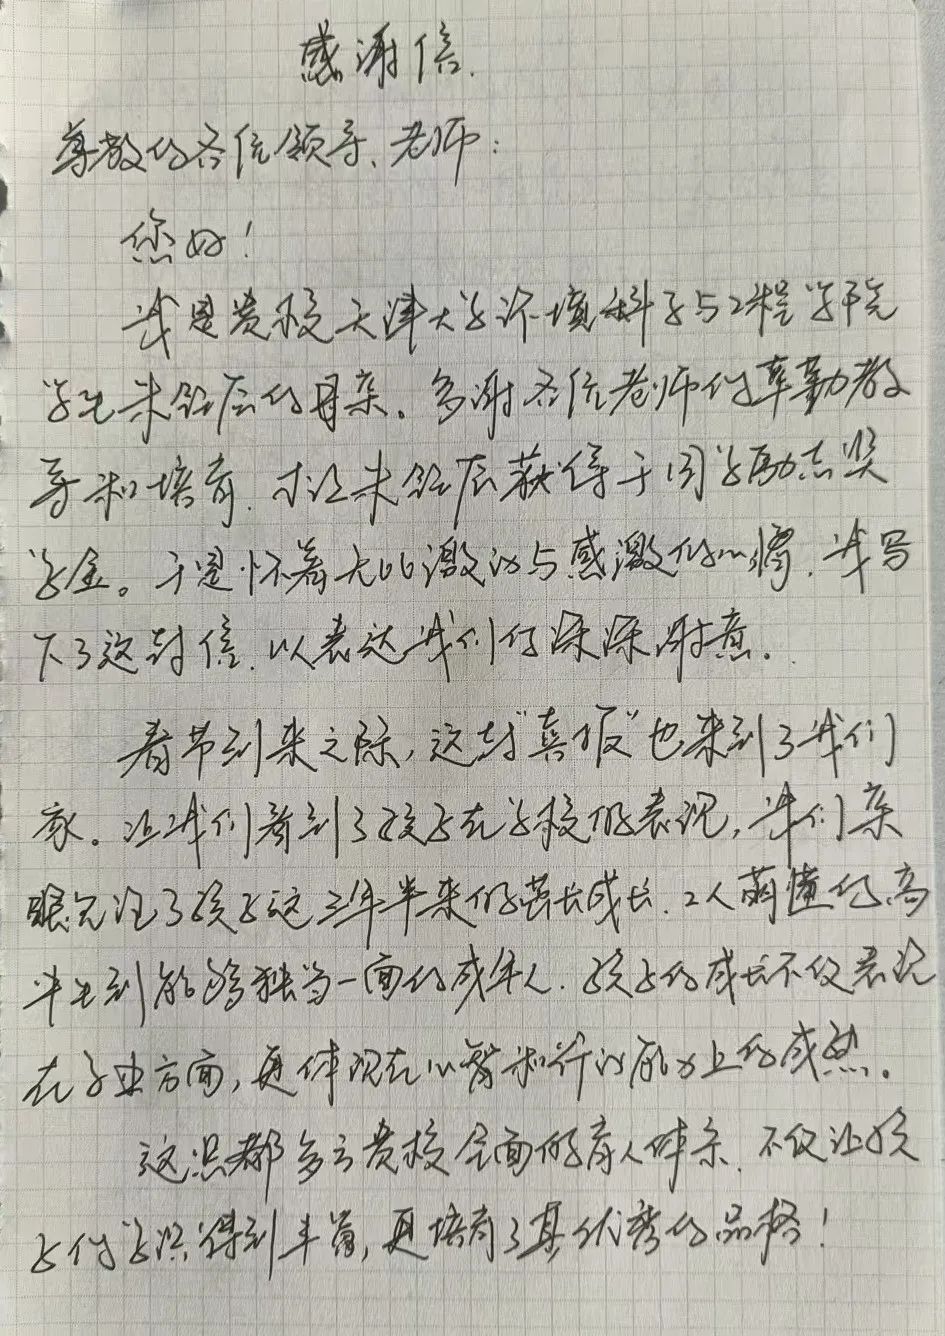 感谢信.
尊敬的各位领导、老师：
您好！
我是贵校天津大学环境科学与工程学院
学生朱的母亲。多谢各位老师的辛勤教
导和培育，才让朱获得了国家励志奖
学金。于是怀着无比激动与感激的心情，我写
下了这封信，以表达我们的深深谢意。
春节到来之际，这封"喜报"也来到了我们
家。让我们看到了孩子在学校的表现，我们亲
眼见证了孩子这三年半来的茁长成长，从懵懂的高
中生到能够独当一面的成年人，孩子的成长不仅表现
在学业方面，更体现在心智和行为能力上的成熟。
这些都多亏贵校全面的育人体系，不仅让孩
子的学识得到丰富，更培育了其优秀的品格！